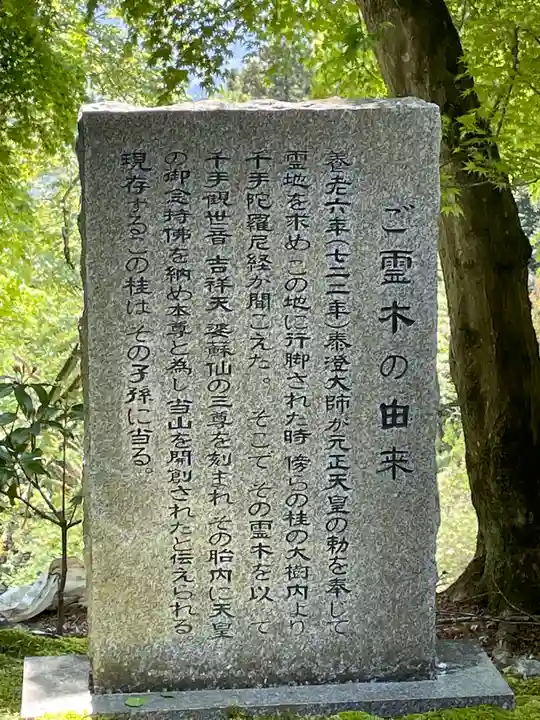 ご霊木の由来
養老六年(七二二年)泰澄大師が元正天皇の勅を奉じて
霊地を求めこの地に行脚された時 傍らの桂の大樹内より
千手陀羅尼経が聞こえた。そこで その霊木を以って
千手観世音 吉祥天 婆蘇仙の三尊を刻まれ その胎内に天皇
の御念持佛を納め本尊と為し当山を開創されたと伝えられる
現存するこの桂は その子孫に当る。